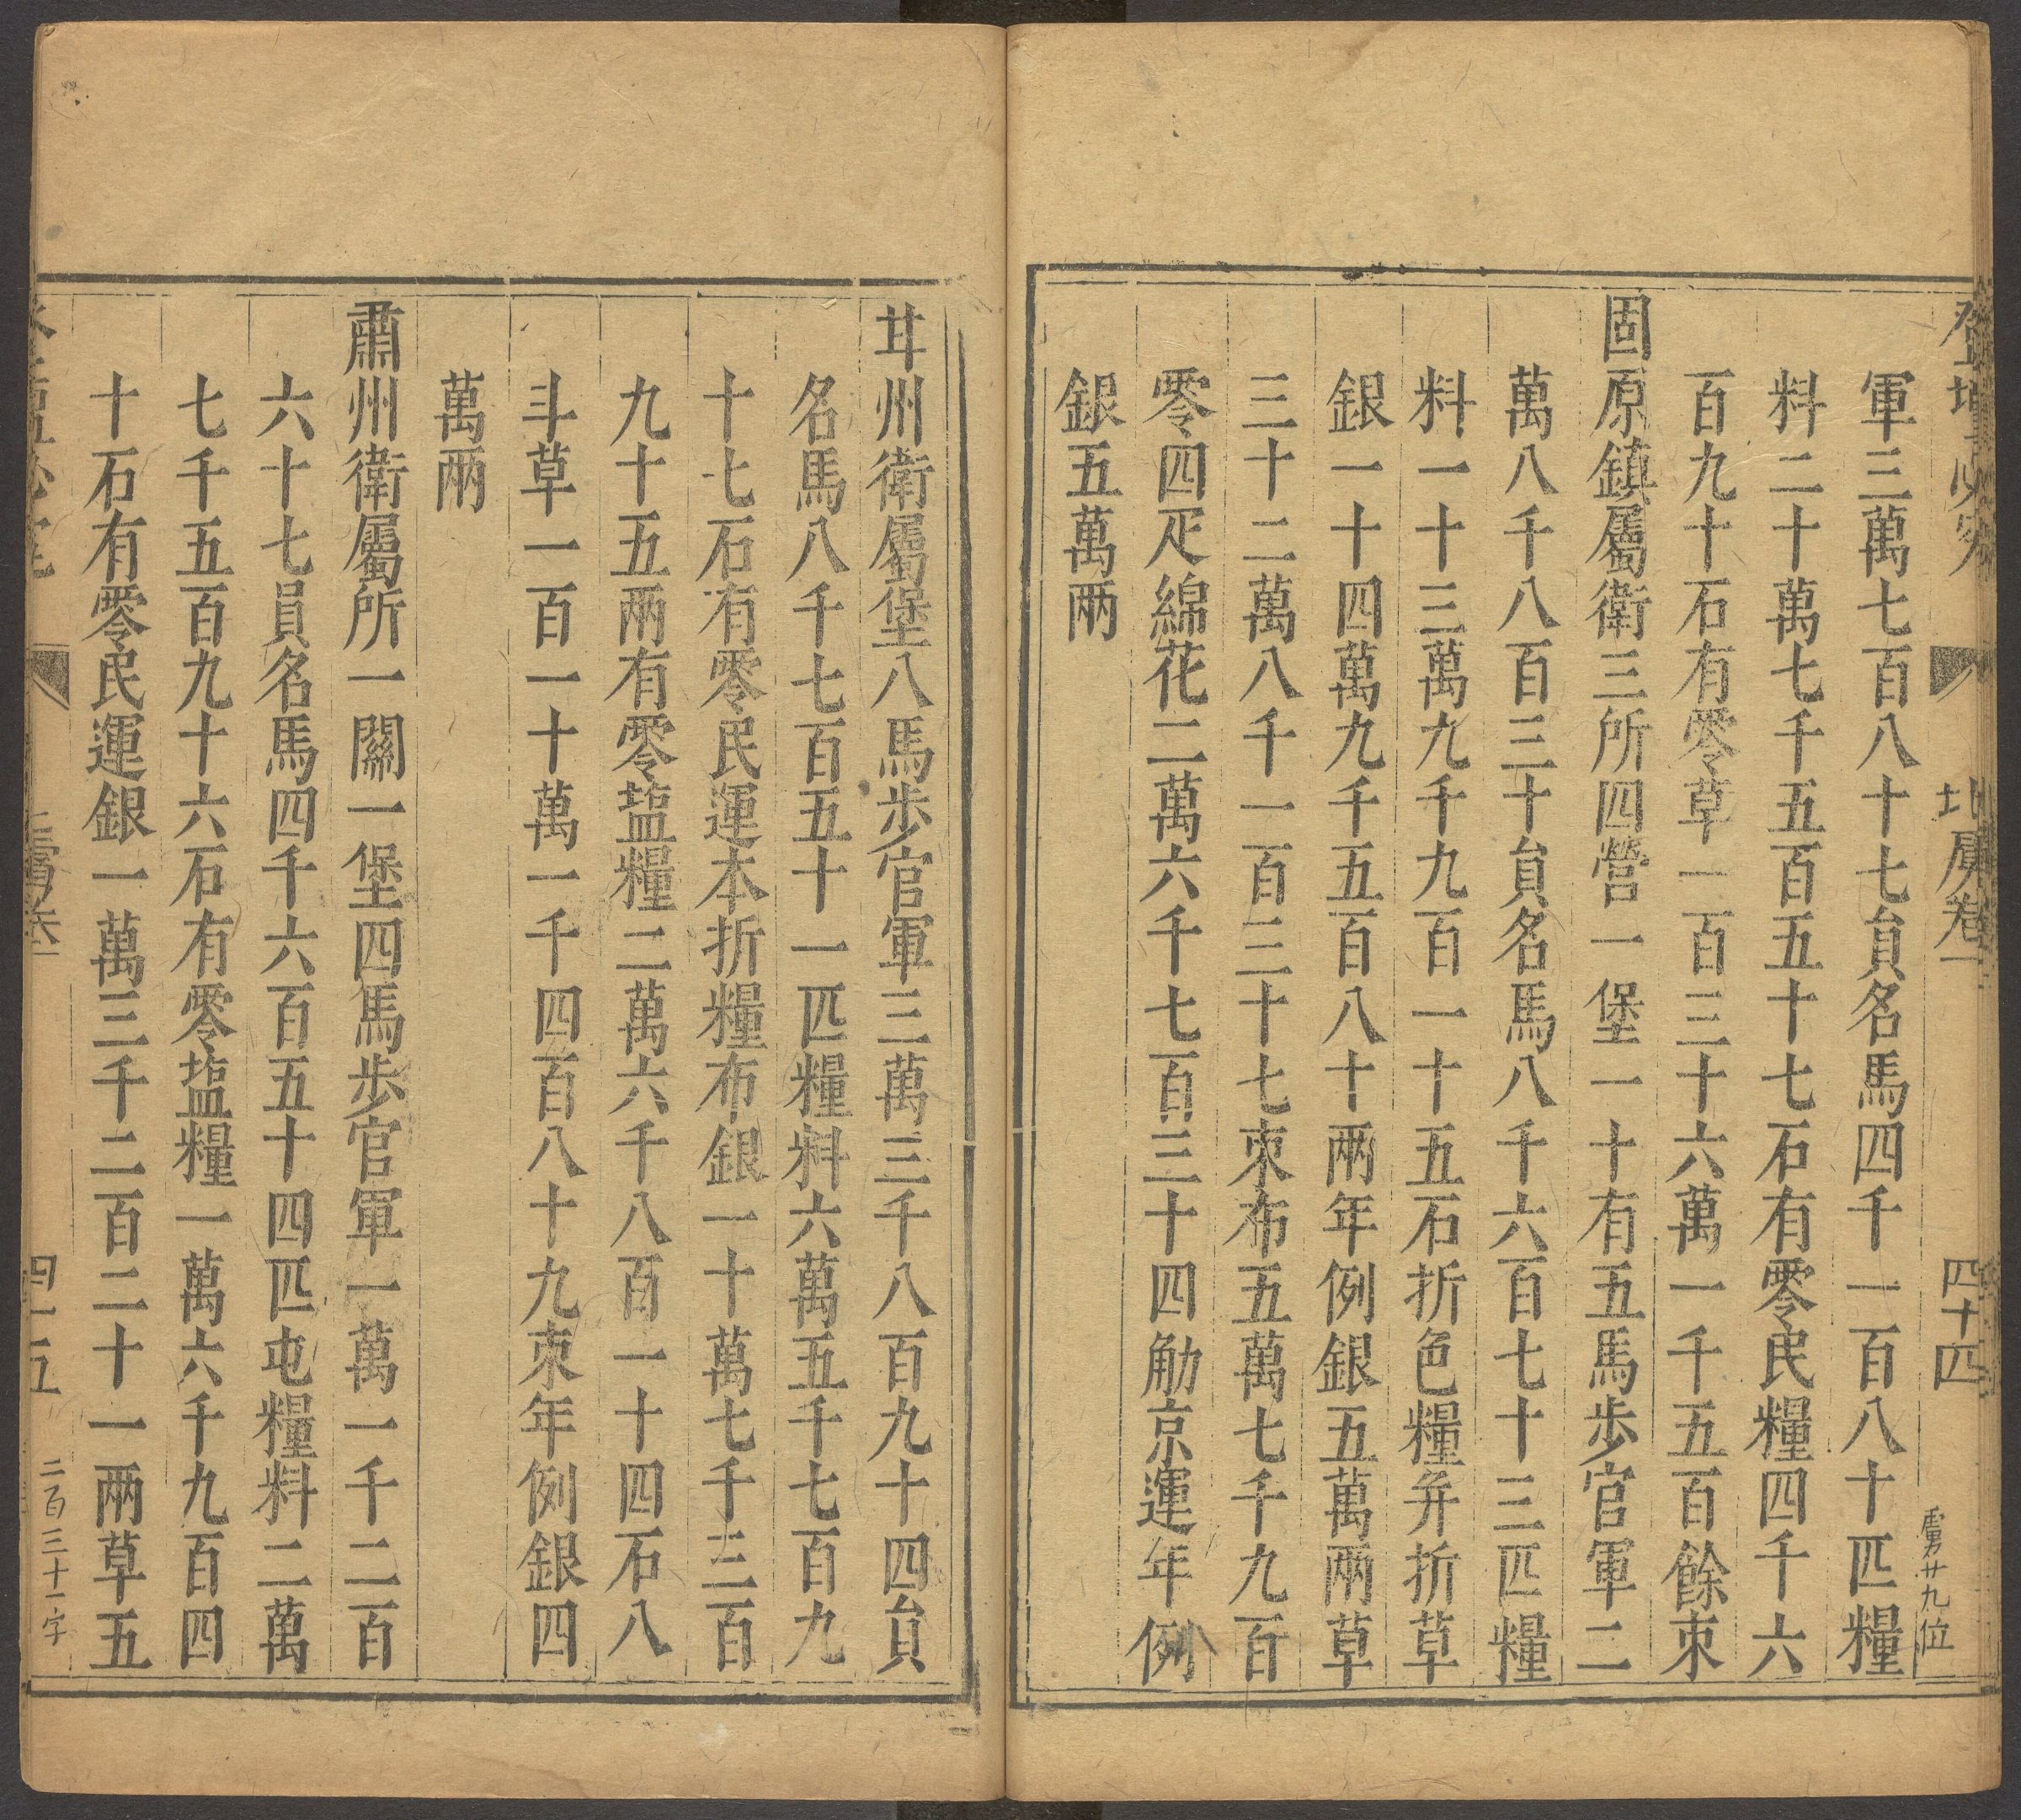 登壇必究 北虜卷一 四十四 虜廿九位
軍三萬七百八十七員名馬四千一百八十匹糧
料二十萬七千五百五十七石有零民糧四千六
百九十石有零草一百三十六萬一千五百餘束
固原鎮屬衛三所四營一堡一十有五馬步官軍二
萬八千八百三十員名馬八千六百七十三匹糧
料一十三萬九千九百一十五石折色糧并折草
銀一十四萬九千五百八十兩年例銀五萬兩草
三十二萬八千一百三十七束布五萬七千九百
零四疋綿花二萬六千七百三十四觔京運年例
銀五萬兩
甘州衛屬堡八馬步官軍三萬三千八百九十四員
名馬八千七百五十一匹糧料六萬五千七百九
十七石有零民運本折糧布銀一十萬七千三百
九十五兩有零塩糧二萬六千八百一十四石八
斗草一百一十萬一千四百八十九束年例銀四
萬兩
肅州衛屬所一關一堡四馬步官軍一萬一千二百
六十七員名馬四千六百五十四匹屯糧料二萬
七千五百九十六石有零塩糧一萬六千九百四
十石有零民運銀一萬三千二百二十一兩草五
二百三十一字